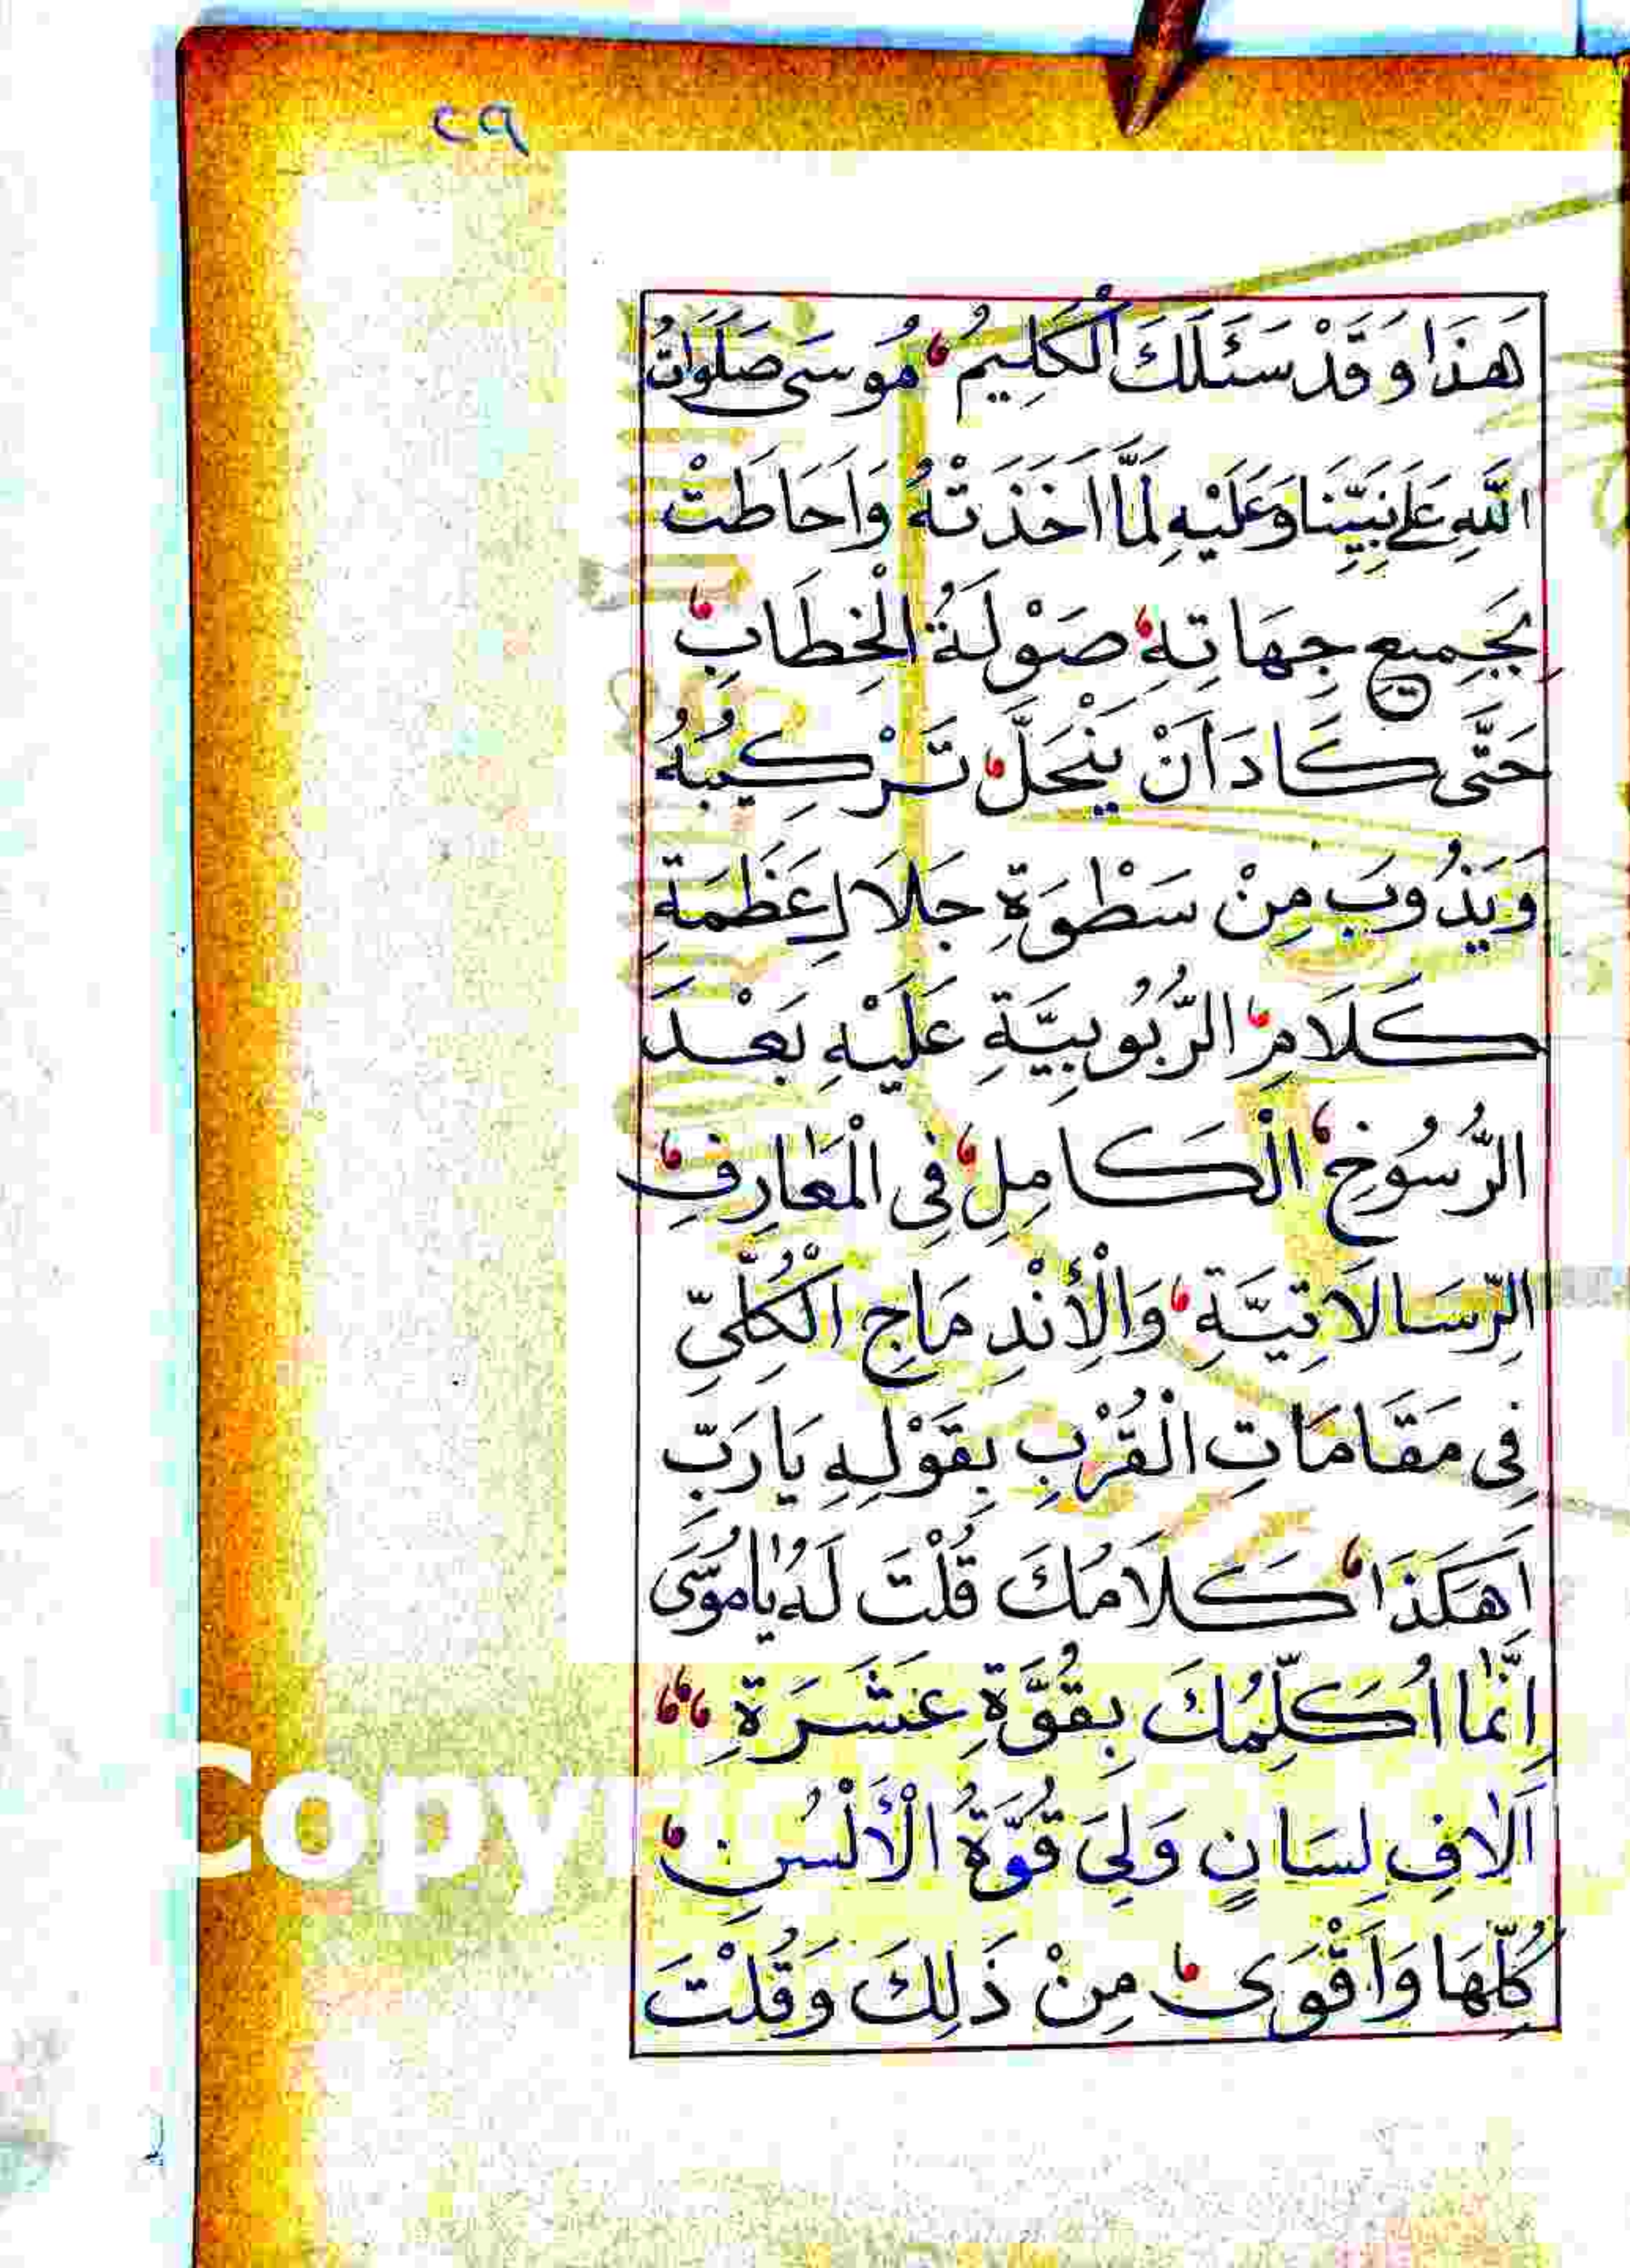 ٢٩
هَذَا وَقَدْ سَئَلَكَ الْكَلِيمُ مُوسَى صَلَوَاتُ
اللّٰهِ عَلَى نَبِيِّنَا وَعَلَيْهِ لَمَّا اَخَذَتْهُ وَاَحَاطَتْ
بِجَمِيعِ جِهَاتِهِ صَوْلَةُ الْخِطَابِ
حَتَّى كَادَ اَنْ يَنْحَلَّ تَرْكِيبُهُ
وَيَذُوبَ مِنْ سَطْوَةِ جَلَالِ عَظَمَةِ
كَلَامِ الرُّبُوبِيَّةِ عَلَيْهِ بَعْدَ
الرُّسُوخِ الْكَامِلِ فِى الْمَعَارِفِ
الرِّسَالَاتِيَّةِ وَالْأِنْدِمَاجِ الْكُلِّىِّ
فِى مَقَامَاتِ الْقُرْبِ بِقَوْلِهِ يَارَبِّ
اَهَكَذَا كَلَامُكَ قُلْتَ لَهُ يَامُوسَى
اِنَّمَا اُكَلِّمُكَ بِقُوَّةِ عَشَرَةِ
اَلَافِ لِسَانٍ وَلِىَ قُوَّةُ الْأَلْسُنِ
كُلِّهَا وَاَقْوَى مِنْ ذَلِكَ وَقُلْتَ
Copy